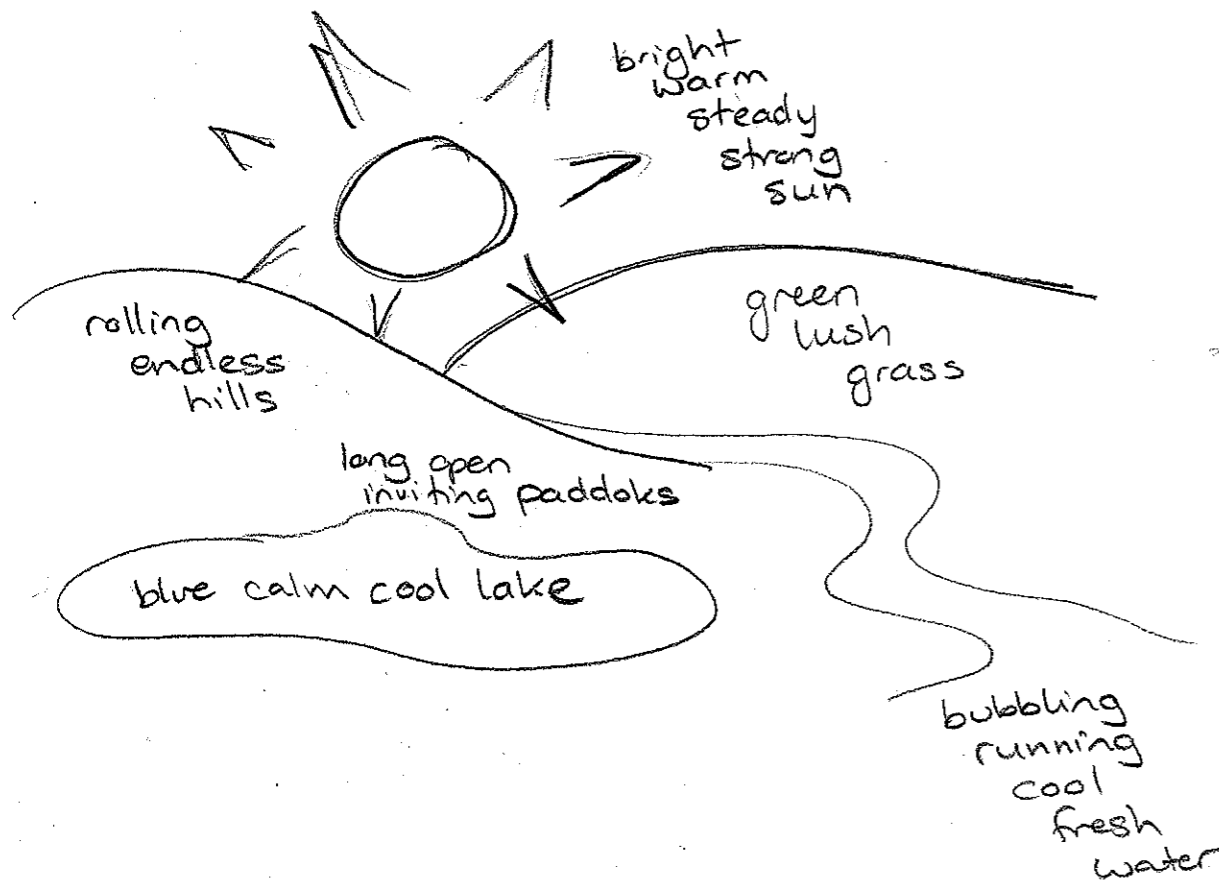 bright
warm
steady
strong
sun
rolling
endless
hills
green
lush
grass
long open
inviting paddoks
blue calm cool lake
bubbling
running
cool
fresh
water